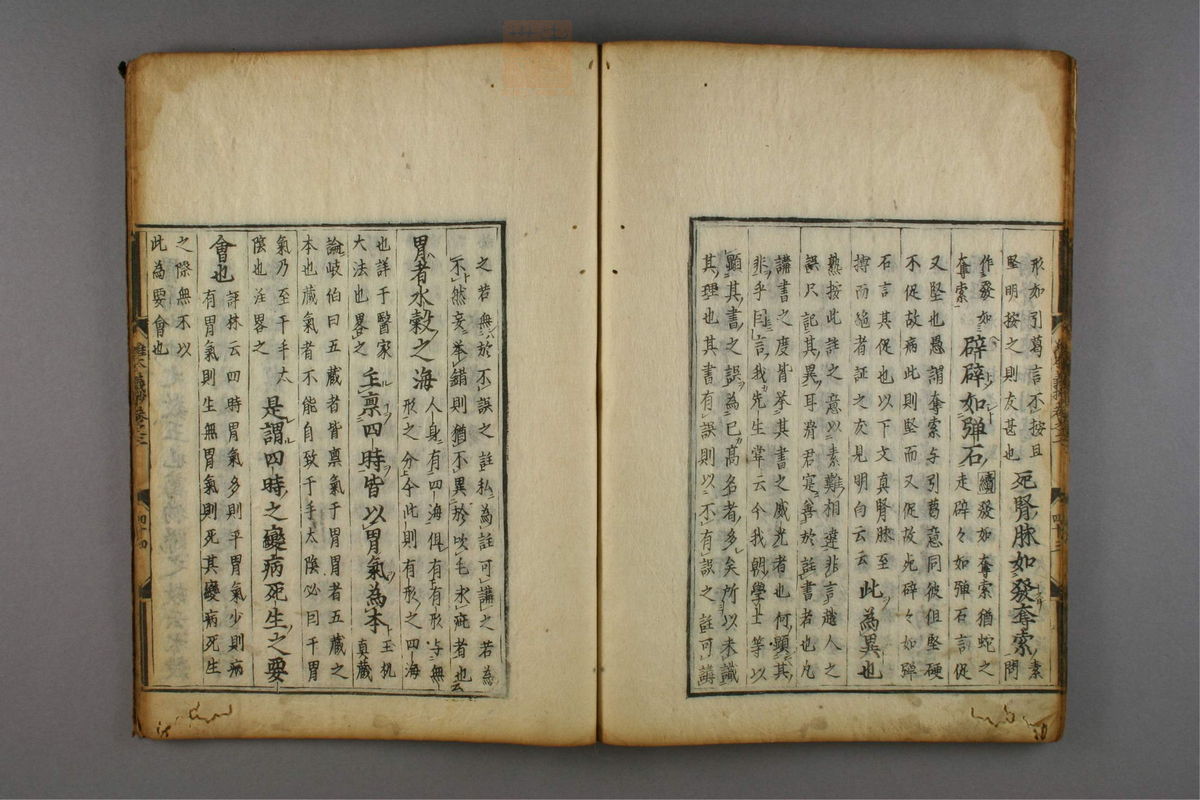 形如引葛言不按且
堅明按之則友甚也
死腎脉如發奪索
素
問
作發如
奪索
辟辟如弾石
續發如奪索猶蛇之
走辟々如弾石言促
又堅也愚謂奪索与引葛意同彼但堅硬
不促故病此則堅而又促故死辟々如弾
石言其促也以下文真腎脉至
搏而絶者証之友見明白云云
此為異也
熟按此註之意以素難相違非言越人之
誤尺記其異耳滑君寔善於註書者也凡
講書之度皆举其書之威光者也何顕其
非乎巨言我先生甞云今我朝學士等以
顕其書之誤為已髙名者多矣所以未識
其理也其書有誤則以不有誤之註可講
之若無於不誤之註私為註可講之若為
不然妄举錯則猶不異於吹毛求疵者也云
胃者水穀之海
人身有四海俱有有形与無
形之分今此則有形之四海
也詳于醫家
大法也畧之
主禀四時皆以胃氣為本
王机
真蔵
論岐伯曰五蔵者皆禀氣于胃胃者五蔵之
本也蔵氣者不能自致于手太陰必曰于胃
氣乃至于手太
陰也注畧之
是謂四時之變病死生之要
會也
評林云四時胃氣多則平胃氣少則病
有胃氣則生無胃氣則死其變病死生
之際無不以
此為要會也
四十四